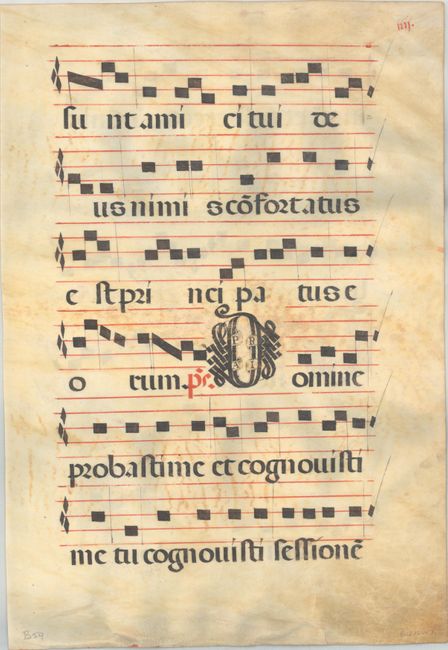 iiij.
su nt ami ci tui de
us nimi s cōfortatus
e st pri nci pa tus e
o rum. ps. Domine
probasti me et cognouisti
me tu cognouisti sessionē
B59